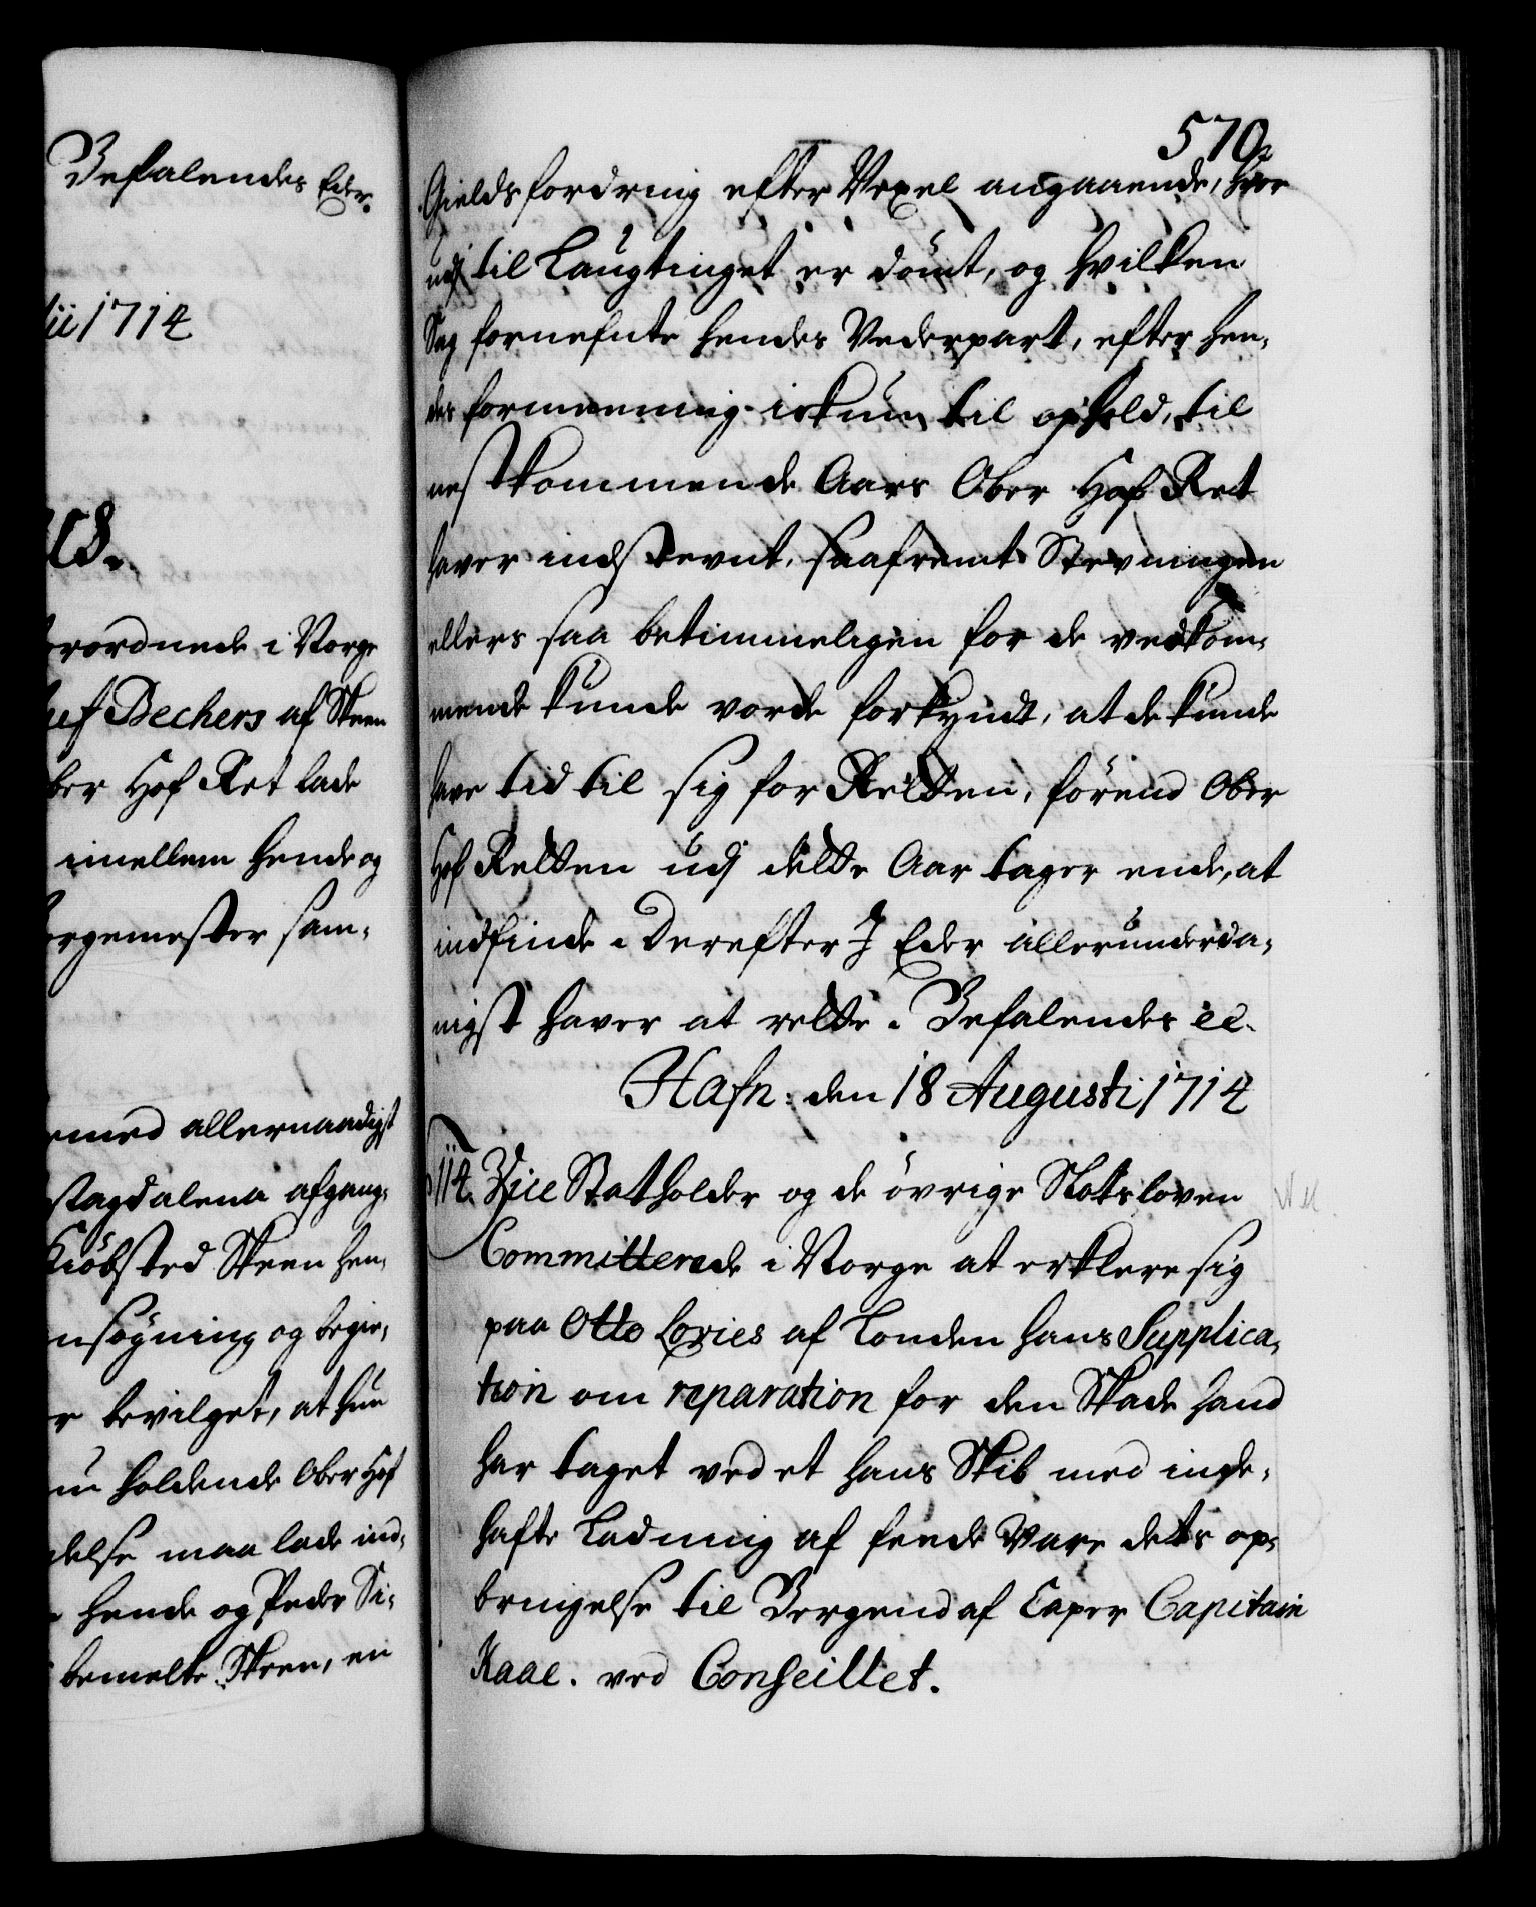 Befalendes Eder.
ii 1714
rordnede i Norge
uf Bechers af Skeen
ber Hof Ret lade
imellem hende og
orgemester sam-
med allernaadigst
Magdalena afgang-
Kiöbsted Skeen hen-
nsögning og begie-
r bevilget, at hun
nu holdende Ober Hof
delse maa lade ind-
hende og Peder Si-
bemelte Skeen, en
570
Gields fordring efter Vexel angaaende, hvor
udj til Laugtinget er dömt, og hvilken
Sag fornefnte hendes Vederpart, efter hen-
des formeening ickun til ophold, til
nestkommende Aars Ober Hof Ret
haver indstevnt, saafremt Stevningen
ellers saa betimmeligen for de vedkom-
mende kunde vorde forkyndt, at de kunde
have tid til sig for Retten, förend Ober
Hof Retten udj dette Aar tager ende, at
indfinde. Derefter I Eder allerunderda-
nigst haver at rette. Befalendes &c.
Hafn: den 18 Augusti 1714
114. Vice Statholder og de övrige Slotsloven
Committerede i Norge at erklere sig
paa Otto Lories af Londen hans Supplica-
tion om reparation for den Skade hand
har taget ved et hans Skib med inde-
hafte Ladning af fende Vare dets op-
bringelse til Bergen af Caper Capitain
Kaae. ved Conseillet.